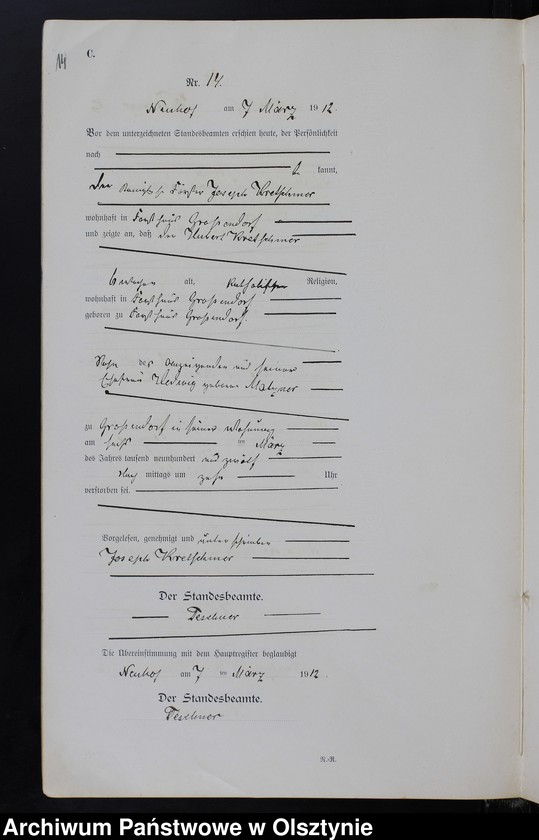 14
C.
Nr. 14.
Neuhof am 7 März 1912.
Vor dem unterzeichneten Standesbeamten erschien heute, der Persönlichkeit
nach
kannt,
der Förster Joseph Kretschmer
wohnhaft in Forsthaus Großendorf
und zeigte an, daß der Hubert Kretschmer
6 Wochen alt, katholischer Religion,
wohnhaft in Forsthaus Großendorf
geboren zu Forsthaus Großendorf.
Sohn des Anzeigenden und seiner
Ehefrau Hedwig geborene
zu Großendorf in seiner Wohnung
am sechs im März
des Jahres tausend neunhundert und zwölf
Nach mittags um zehn Uhr
verstorben sei.
Vorgelesen, genehmigt und unterschrieben
Joseph Kretschmer
Der Standesbeamte.
Teschner
Die Übereinstimmung mit dem Hauptregister beglaubigt
Neuhof am 7 ten März 1912.
Der Standesbeamte.
Teschner
N.-R.
Archiwum Państwowe w Olsztynie